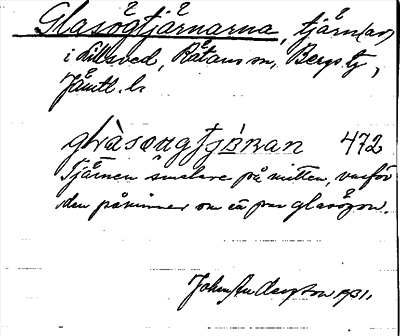 Glasögtjärnarna, tjärn(ar)
i Lillsved, Rätans sn, Bergs tg,
Jämtl. l.
472
Tjärnen smalare på mitten, varför
den påminner om ett par glasögon.
John Anderzton 1931.